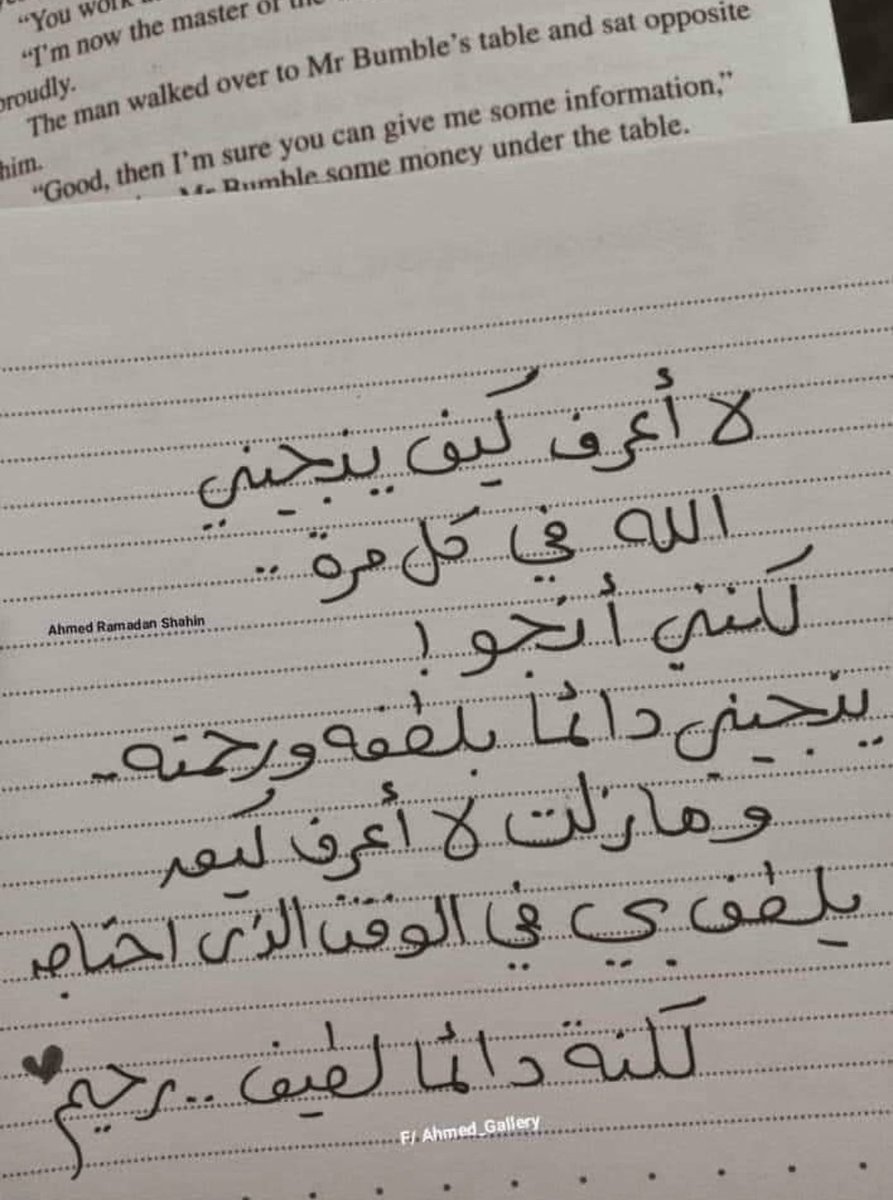 “You work
“I’m now the master of the
proudly.
The man walked over to Mr Bumble’s table and sat opposite
him.
“Good, then I’m sure you can give me some information,”
Mr Bumble some money under the table.
لا أعرف كيف ينجيني
الله في كل مرة ..
Ahmed Ramadan Shahin
لكنني أنجو !
ينجيني دائمًا بلطفه ورحمته ..
وما زلت لا أعرف كيف
يلطف بي في الوقت الذي احتاج
لكنة دائمًا لطيف .. رحيم
F/ Ahmed_Gallery